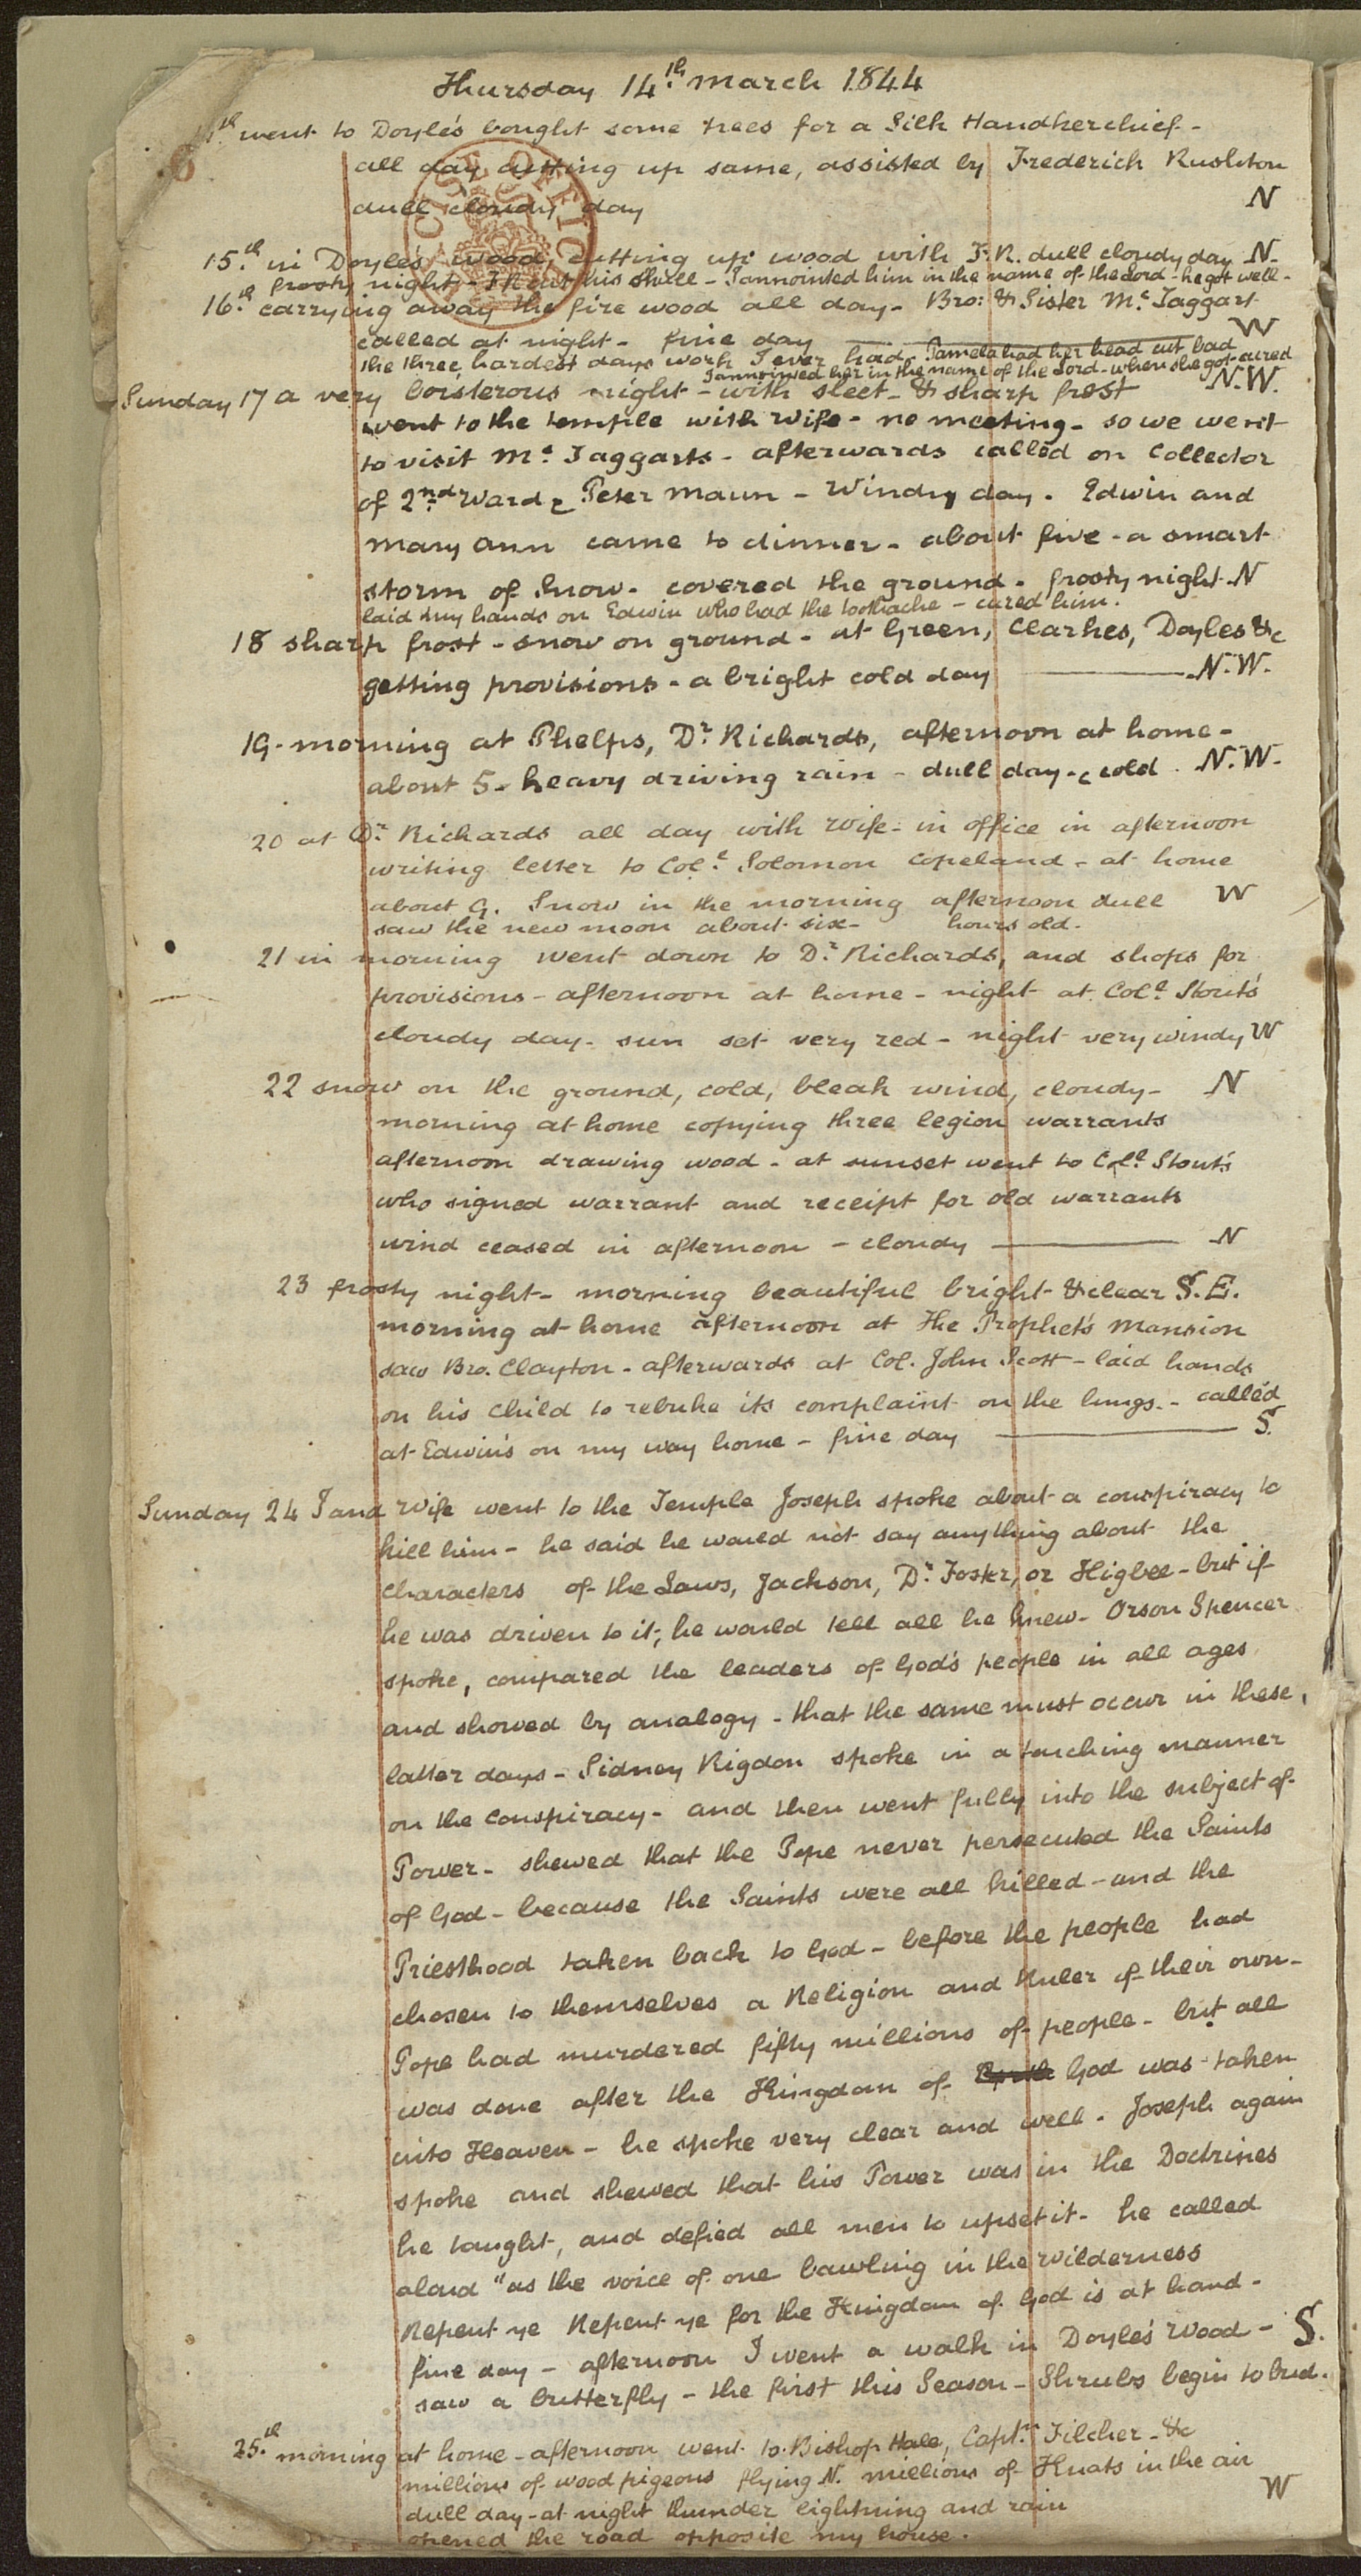 Thursday 14.th March 1844
14th went to Doyle's bought some trees for a Silk Handkerchief -
all day cutting up same, assisted by Frederick Rushton
dull cloudy day N
15.th in Doyle's wood, cutting up wood with F.R. dull cloudy day N-
frosty night - F.R cut his skull - I annointed him in the name of the Lord - he got well -
16.th carrying away the fire wood all day - Bro: & Sister Mc Taggart
called at night - fine day W
the three hardest days work I ever had - Pamela had her head cut bad
I annointed her in the name of the Lord - when she got cured
Sunday 17 a very boisterous night - with sleet - & sharp frost N.W.
went to the temple with wife - no meeting - so we went
to visit Mc Taggarts - afterwards called on Collector
of 2nd Ward & Peter Maun - Windy day. Edwin and
Mary Ann came to dinner - about five - a smart
storm of Snow - covered the ground - frosty night - N
laid my hands on Edwin who had the toothache - cured him.
18 sharp frost - snow on ground - at Green, Clarkes, Doyles &c
getting provisions - a bright cold day N.W.
19 - morning at Phelps, Dr Richards, afternoon at home -
about 5 - heavy driving rain - dull day - & cold. N.W.
20 at Dr Richards all day with Wife - in office in afternoon
writing letter to Col. Solomon Copeland - at home
about 9. Snow in the morning afternoon dull W
saw the new moon about six - hours old.
21 in morning went down to Dr Richards, and shops for
provisions - afternoon at home - night at Col. Stout's
cloudy day - sun set very red - night very windy W
22 snow on the ground, cold, bleak wind, cloudy - N
morning at home copying three legion warrants
afternoon drawing wood - at sunset went to Col. Stout's
who signed warrant and receipt for old warrants
wind ceased in afternoon - cloudy N
23 frosty night - morning beautiful bright & clear S.E.
morning at home afternoon at The Prophet's Mansion
saw Bro. Clayton - afterwards at Col. John Scott - laid hands
on his Child to rebuke its complaint on the lungs. - called
at Edwin's on my way home - fine day S.
Sunday 24 I and Wife went to the Temple Joseph spoke about a conspiracy to
kill him - he said he would not say anything about the
characters of the Laws, Jackson, Dr Foster, or Higbee - but if
he was driven to it, he would tell all he knew - Orson Spencer
spoke, compared the leaders of God's people in all ages
and showed by analogy - that the same must occur in these,
latter days - Sidney Rigdon spoke in a touching manner
on the Conspiracy - and then went fully into the subject of
Power - shewed that the Pope never persecuted the Saints
of God - because the Saints were all killed - and the
Priesthood taken back to God - before the people had
chosen to themselves a Religion and Ruler of their own -
Pope had murdered fifty millions of people - but all
was done after the Kingdom of God was taken
into Heaven - he spoke very clear and well. Joseph again
spoke and shewed that his Power was in the Doctrines
he taught, and defied all men to upset it - he called
aloud "as the voice of one bawling in the Wilderness
Repent ye Repent ye for the Kingdom of God is at hand -
fine day - afternoon I went a walk in Doyle's Wood - S.
saw a butterfly - the first this Season - Shrubs begin to bud.
25.th morning at home - afternoon went to Bishop Hale, Capt. Filcher - &c
millions of wood pigeons flying N. millions of Knats in the air
dull day - at night thunder lightning and rain W
opened the road opposite my house.